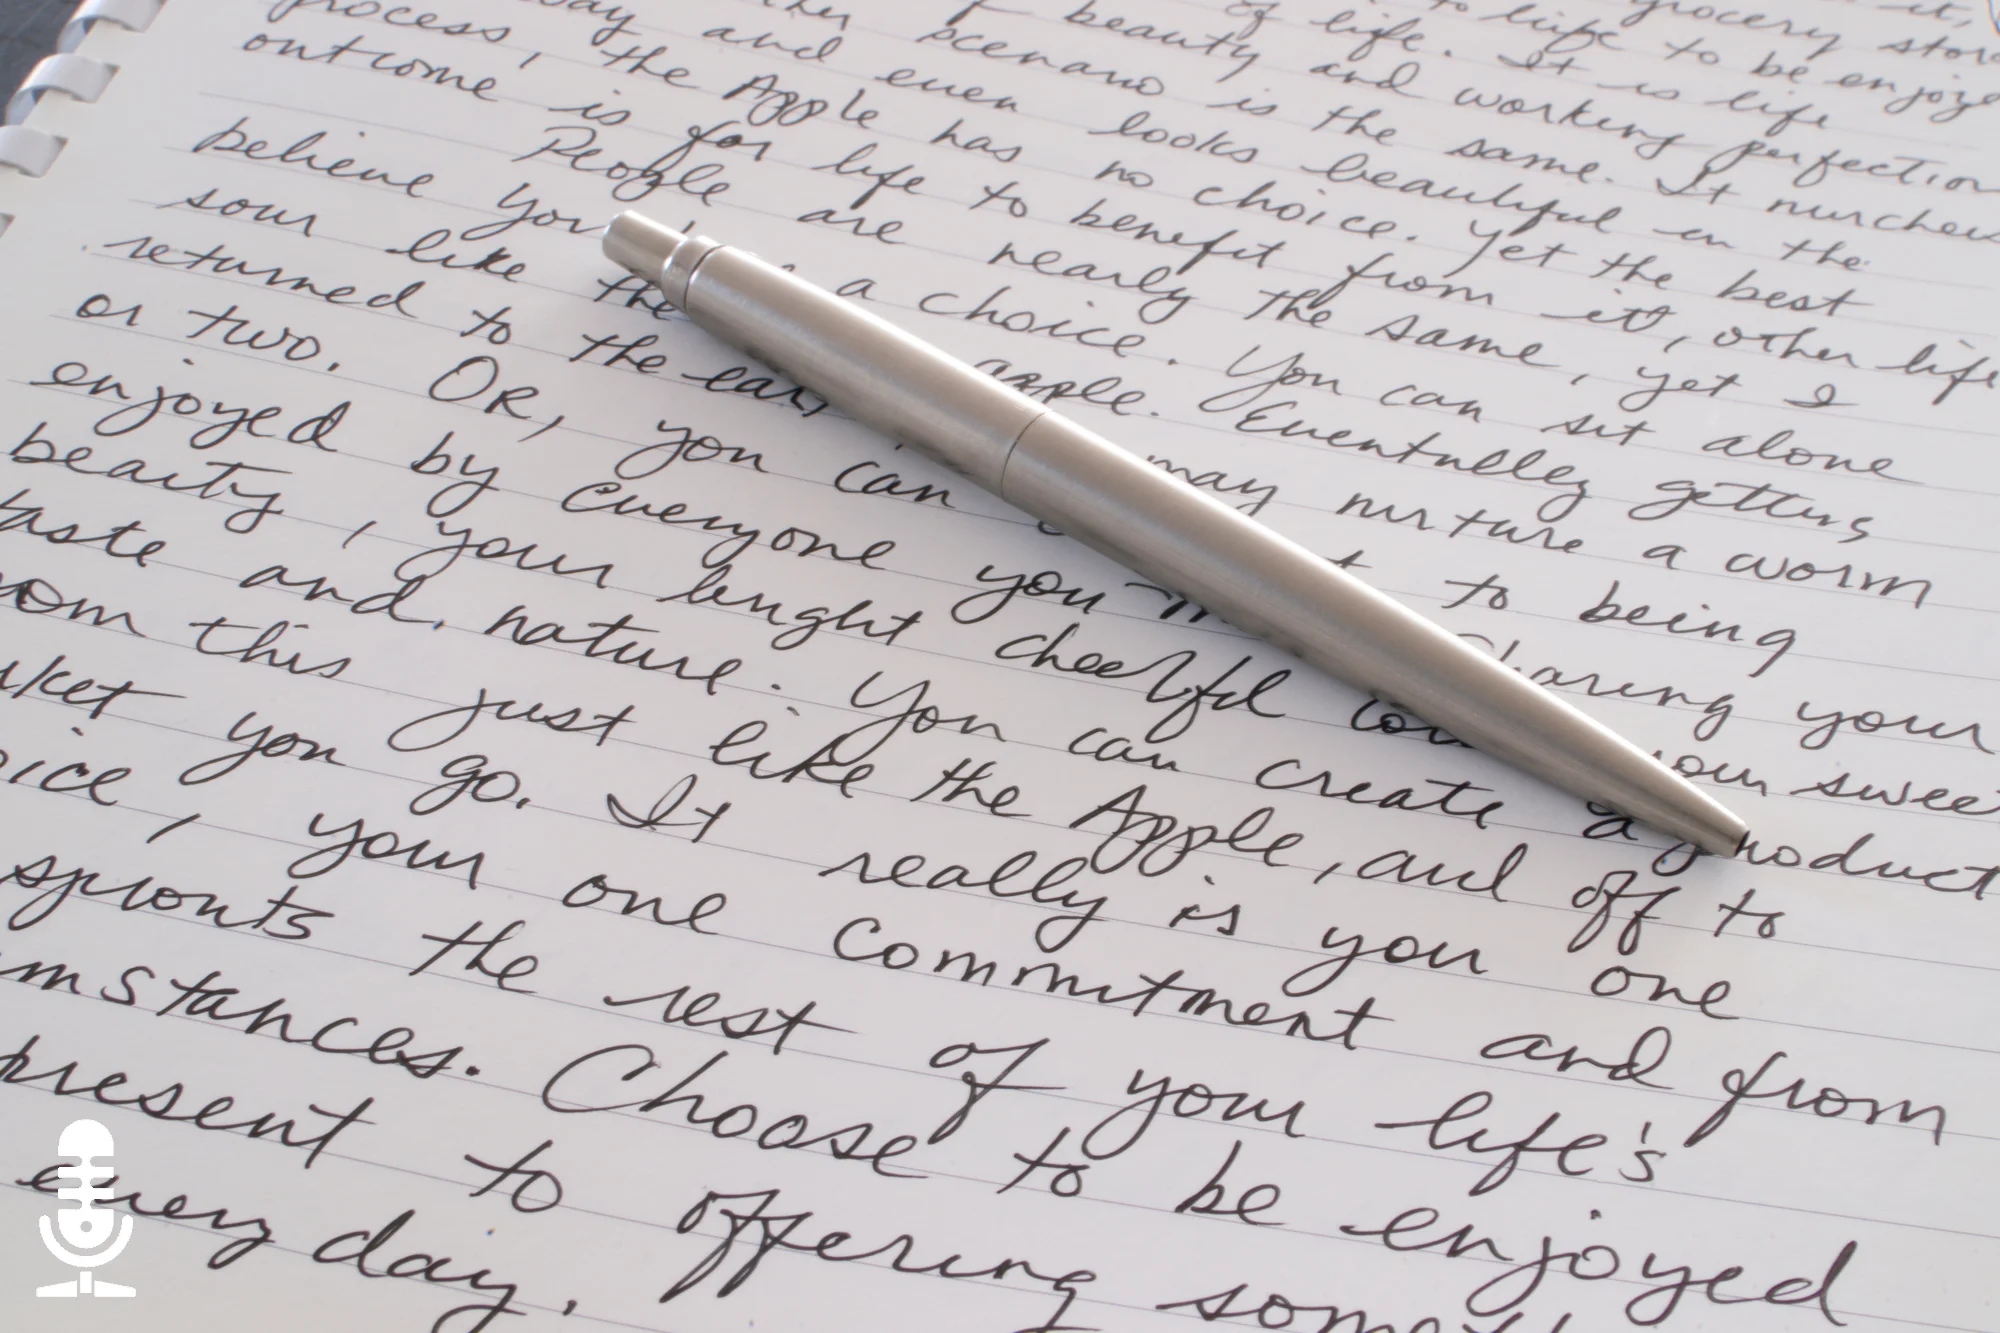 it,
grocery store
to life to be enjoyed
of life. It is life
of beauty and working perfection
scenario is the same. It
way and even looks beautiful in the
process, the Apple has no choice. Yet the best
outcome is for life to benefit from it, other life
People are nearly the same, yet I
believe you a choice. You can sit alone
sour like the apple. Eventulley gettins
returned to the may nurture a worm
or two. OR, you can to being
enjoyed by everyone you Sharing your
beauty, your bright cheerful your sweet
taste and nature. You can create a product
from this just like the Apple, and off to
rket you go. It really is you one
oice, your one commitment and from
sprouts the rest of your life's
mstances. Choose to be enjoyed
present to offering
every day.